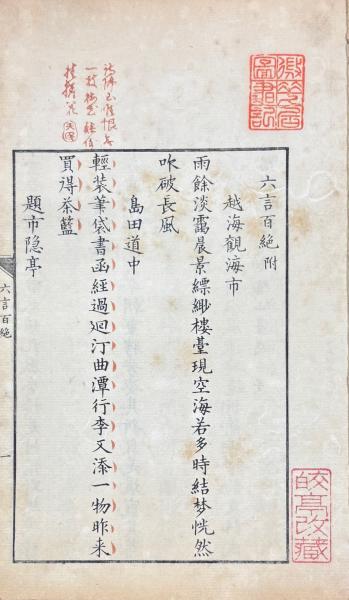 六言百絶附
越海觀海市
雨餘淡靄晨景縹緲樓臺現空海若多時結梦恍然
吹破長風
島田道中
輕装筆袋書函經過迴汀曲潭行李又添一物昨来
買得茶籃
題市隐亭
六言百絶
一
皎亭收藏